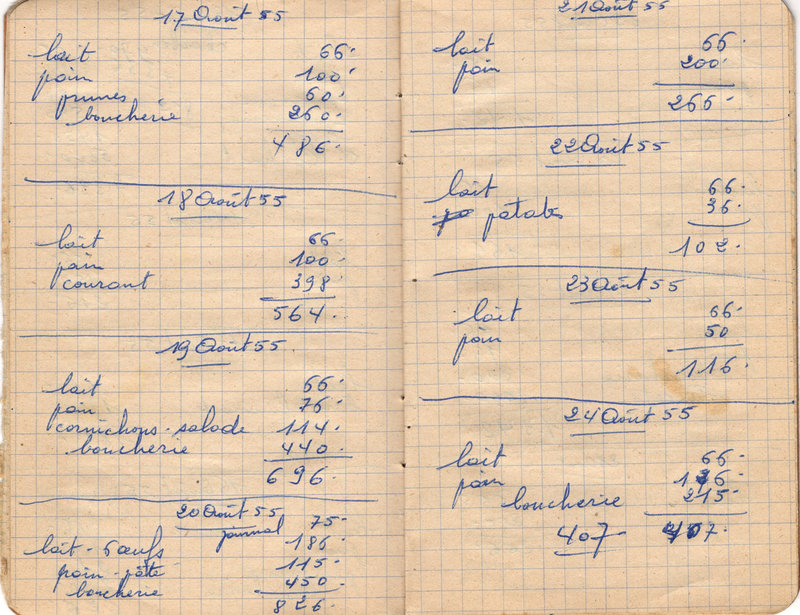 17 Août 55
lait 66.
pain 100.
prunes 60.
boucherie 260.
486.
18 Août 55
lait 66.
pain 100.
courant 398.
564.
19 Août 55.
lait 66.
pain 76.
cornichons - salade 114.
boucherie 440.
696.
20 Août 55
journal 75.
lait - 6 œufs 186.
pain - pâté 115.
boucherie 450.
826.
21 Août 55
lait 66.
pain 200.
266.
22 Août 55
lait 66.
patates 36.
102.
23 Août 55
lait 66.
pain 50.
116.
24 Août 55
lait 66.
pain 126.
boucherie 215.
407. 407.